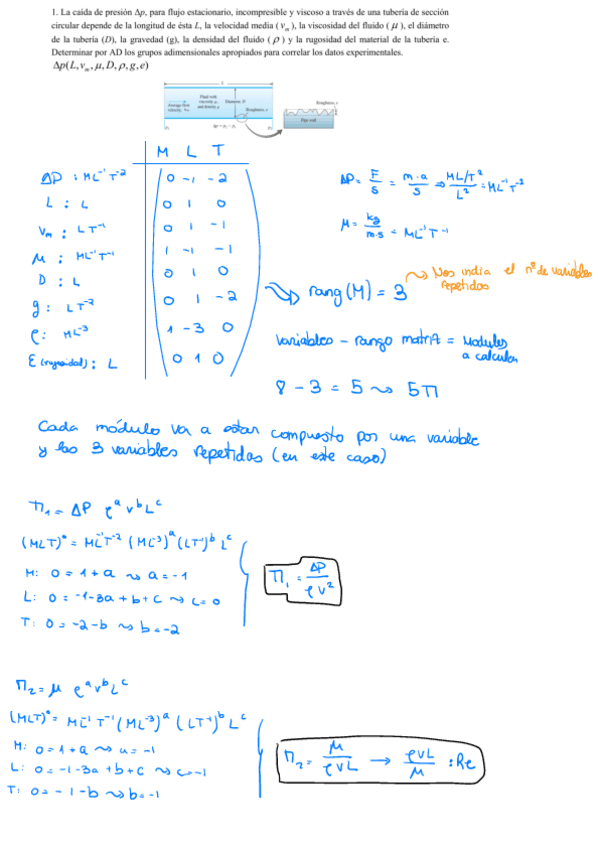 1. La caída de presión Δp, para flujo estacionario, incompresible y viscoso a través de una tubería de sección
circular depende de la longitud de ésta L, la velocidad media (vₘ), la viscosidad del fluido (μ), el diámetro
de la tubería (D), la gravedad (g), la densidad del fluido (ρ) y la rugosidad del material de la tubería e.
Determinar por AD los grupos adimensionales apropiados para correlar los datos experimentales.
Δp(L,vₘ,μ,D,ρ,g,e)
M L T
ΔP : ML⁻¹T⁻² 0 -1 -2
L : L 0 1 0
Vm : LT⁻¹ 0 1 -1
μ : ML⁻¹T⁻¹ 1 -1 -1
D : L 0 1 0
g : LT⁻² 0 1 -2
ρ : ML⁻³ 1 -3 0
E (rugosidad) : L 0 1 0
ΔP = F/S = m·a/S ⇒ ML/T² / L² = ML⁻¹T⁻²
μ = kg/m·s = ML⁻¹T⁻¹
rang(M) = 3
Nos india el nº de variables
repetidos
variables - rango matriz = Modules
a calcular
8 - 3 = 5 ⇝ 5Π
Cada módulo va a estar compuesto por una variable
y las 3 variables repetidas (en este caso)
Π₁ = ΔP ρᵃ vᵇ Lᶜ
(MLT)⁰ = ML⁻¹T⁻² (ML⁻³)ᵃ (LT⁻¹)ᵇ Lᶜ
M: 0 = 1 + a ⇝ a = -1
L: 0 = -1 - 3a + b + c ⇝ c = 0
T: 0 = -2 - b ⇝ b = -2
Π₁ = ΔP / ρv²
Π₂ = μ ρᵃ vᵇ Lᶜ
(MLT)⁰ = ML⁻¹T⁻¹ (ML⁻³)ᵃ (LT⁻¹)ᵇ Lᶜ
M: 0 = 1 + a ⇝ a = -1
L: 0 = -1 - 3a + b + c ⇝ c = -1
T: 0 = -1 - b ⇝ b = -1
Π₂ = μ / ρvL → ρvL / μ : Re